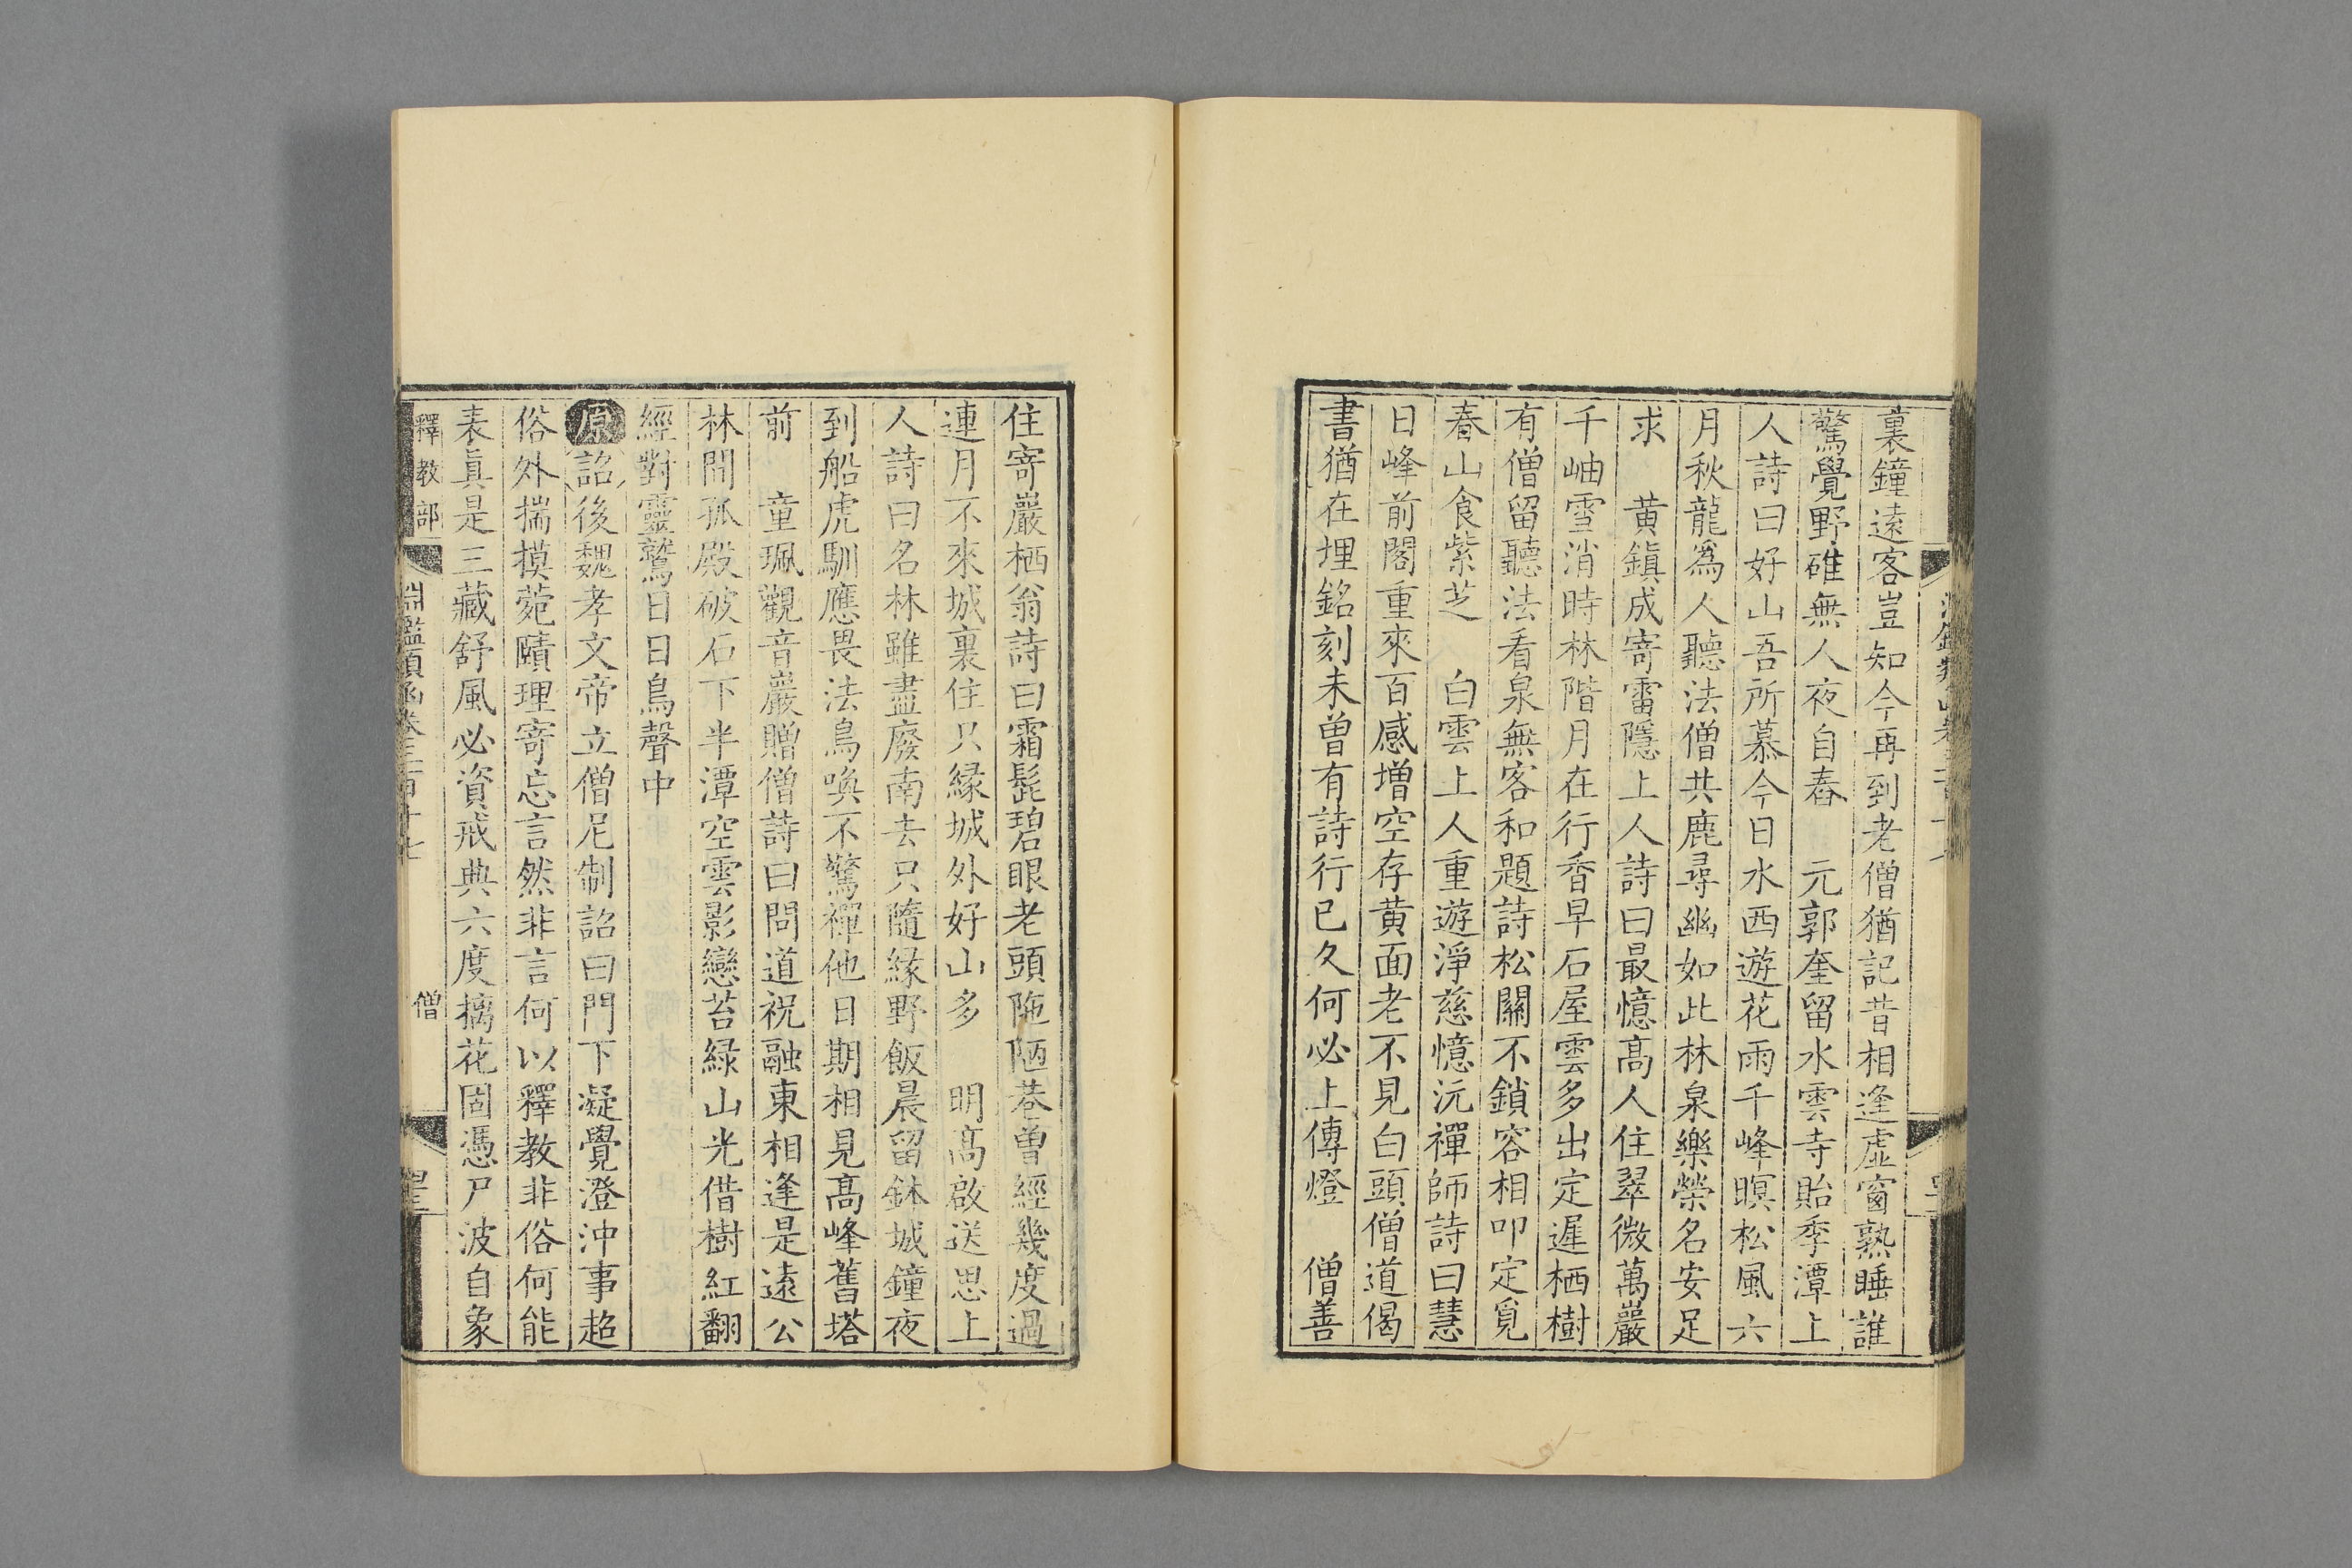 裏鐘遠客豈知今再到老僧猶記昔相逢虛窗熟睡誰
驚覺野碓無人夜自舂　元郭奎留水雲寺貽季潭上
人詩曰好山吾所慕今日水西遊花雨千峰暝松風六
月秋龍爲人聽法僧共鹿尋幽如此林泉樂榮名安足
求　黃鎭成寄雷隱上人詩曰最憶高人住翠微萬巖
千岫雪消時林階月在行香早石屋雲多出定遲栖樹
有僧留聽法看泉無客和題詩松關不鎖容相叩定覓
春山食紫芝　白雲上人重遊淨慈憶沅禪師詩曰慧
日峰前閣重來百感增空存黃面老不見白頭僧道偈
書猶在埋銘刻未曾有詩行已久何必上傳燈　僧善
住寄巖栖翁詩曰霜髭碧眼老頭陁陋巷曽經幾度過
連月不來城裏住只緣城外好山多　明高啟送思上
人詩曰名林雖盡廢南去只隨緣野飯晨留鉢城鐘夜
到船虎馴應畏法鳥喚不驚禪他日期相見高峰舊塔
前　童珮觀音巖贈僧詩曰問道祝融東相逢是遠公
林間孤殿破石下半潭空雲影戀苔綠山光借樹紅翻
經對靈鷲日日鳥聲中
原詔後魏孝文帝立僧尼制詔曰門下凝覺澄沖事超
俗外揣摸菀賾理寄忘言然非言何以釋教非俗何能
表眞是三藏舒風必資戒典六度摛花固憑尸波自象
釋教部　淵鑑類函卷三百十七　僧